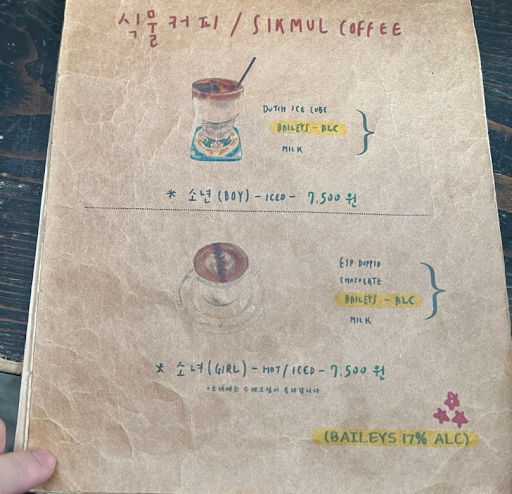 식물커피 / SIKMUL COFFEE
DUTCH ICE CUBE
BAILEYS - ALC
MILK
* 소년 (BOY) - ICED - 7.500 원
ESP DOPPIO
CHOCOLATE
BAILEYS - ALC
MILK
* 소녀 (GIRL) - HOT / ICED - 7.500 원
(BAILEYS 17% ALC)